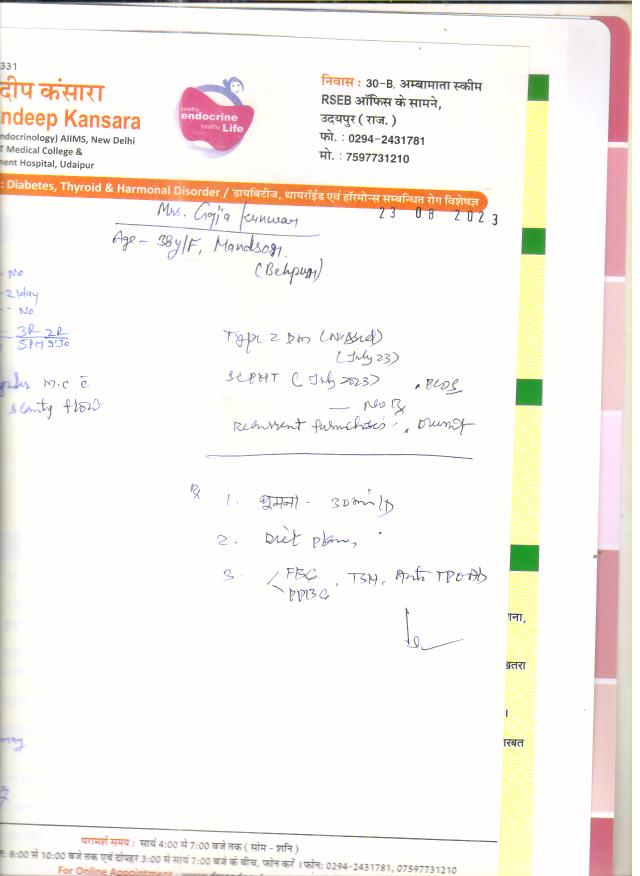 331
दीप कंसारा
ndeep Kansara
ndocrinology) AIIMS, New Delhi
T Medical College &
ent Hospital, Udaipur
healthy
endocrine
healthy Life
निवास : 30-B, अम्बामाता स्कीम
RSEB ऑफिस के सामने,
उदयपुर ( राज. )
फो. : 0294-2431781
मो. : 7597731210
: Diabetes, Thyroid & Harmonal Disorder / डायबिटीज, थायरॉईड एवं हॉरमोन्स सम्बन्धित रोग विशेषज्ञ
Mrs. Kunwar
23 08 2023
Age - 38y/F, Mandsor
- No
- 21day
- No
3R 2R
5PM 9:30
M.C c̄
scanty flow
Type 2 Dm
(July 23)
(July 2023)
. PCOS
Recurrent furunclosis
Rx
1. घूमना - 30min/D
2. Diet plan,
3. FBG, TSH, Anti TPOAb
PPBG
गना,
खतरा
।
रबत
परामर्श समय : सायं 4:00 से 7:00 बजे तक ( सोम - शनि )
: 8:00 से 10:00 बजे तक एवं दोपहर 3:00 से सायं 7:00 बजे के बीच, फोन करें । फोन: 0294-2431781, 07597731210
For Online Appointment :